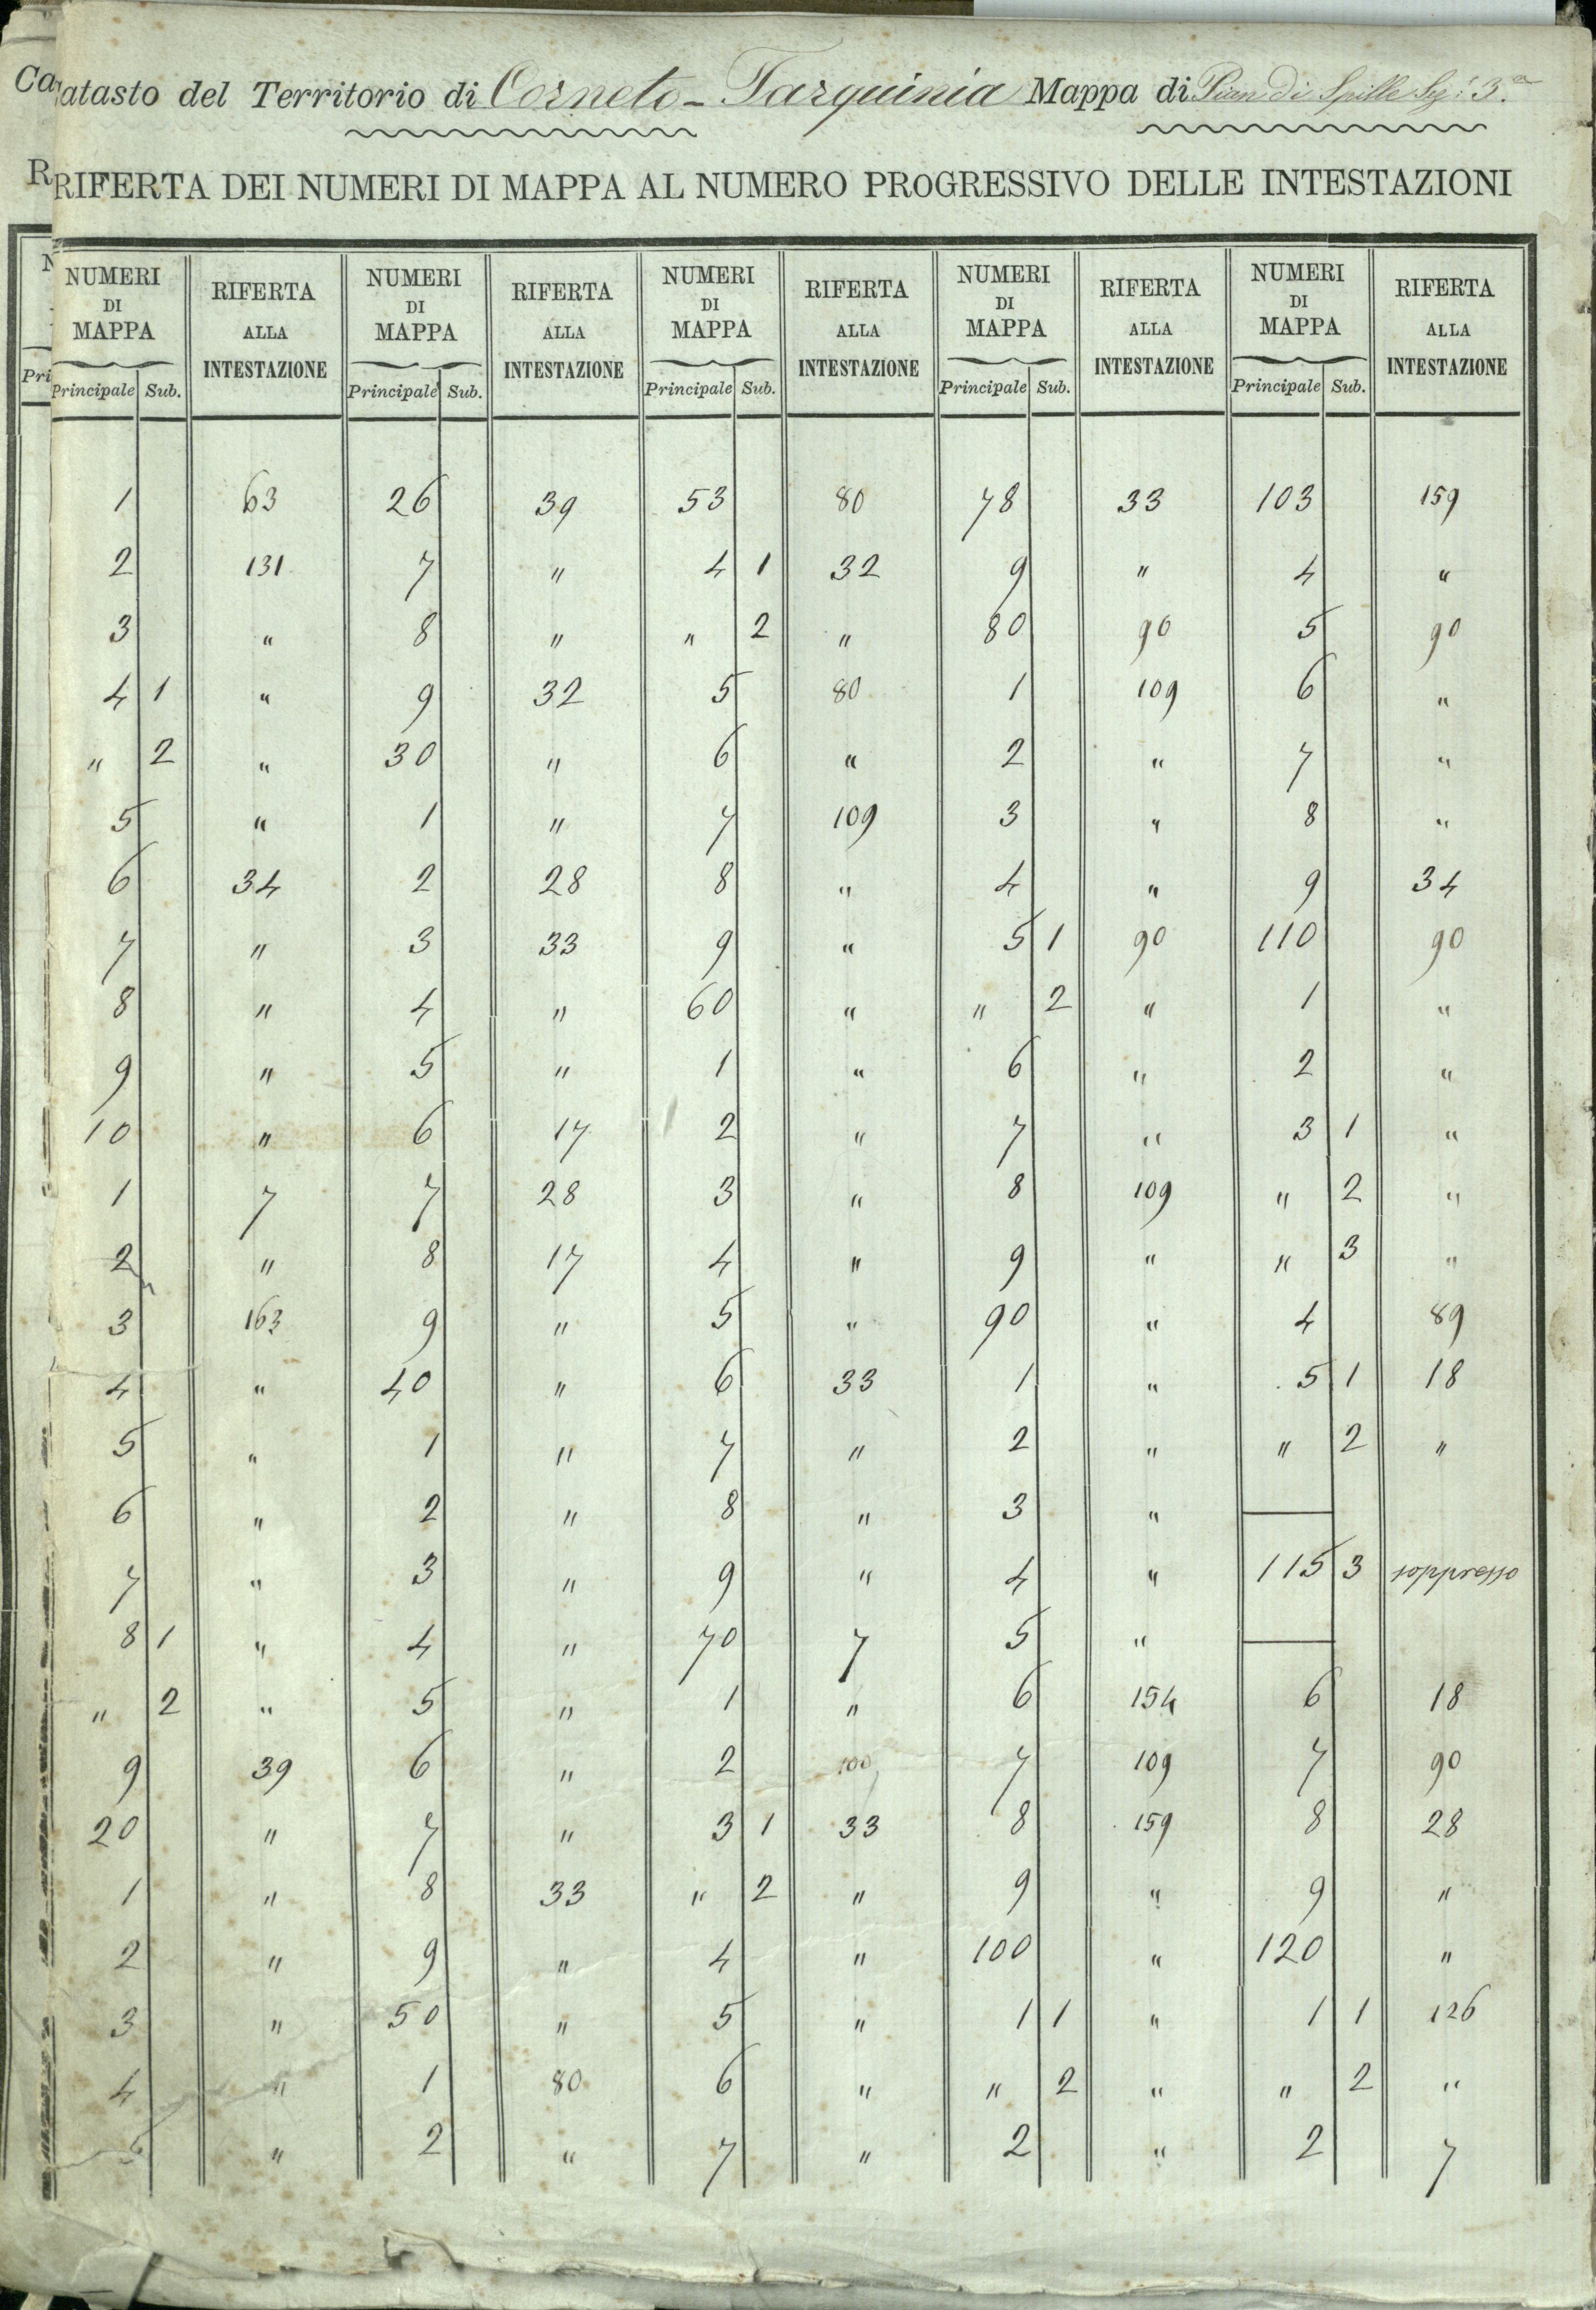 Catasto del Territorio di Corneto - Tarquinia Mappa di Pian di Spille Sez: 3.a
RIFERTA DEI NUMERI DI MAPPA AL NUMERO PROGRESSIVO DELLE INTESTAZIONI
NUMERI DI MAPPA RIFERTA ALLA INTESTAZIONE NUMERI DI MAPPA RIFERTA ALLA INTESTAZIONE NUMERI DI MAPPA RIFERTA ALLA INTESTAZIONE NUMERI DI MAPPA RIFERTA ALLA INTESTAZIONE NUMERI DI MAPPA RIFERTA ALLA INTESTAZIONE
Principale Sub. Principale Sub. Principale Sub. Principale Sub. Principale Sub.
1 63 26 39 53 80 78 33 103 159
2 131 7 " 4 1 32 9 " 4 "
3 " 8 " " 2 " 80 90 5 90
4 1 " 9 32 5 80 1 109 6 "
" 2 " 30 " 6 " 2 " 7 "
5 " 1 " 7 109 3 " 8 "
6 34 2 28 8 " 4 " 9 34
7 " 3 33 9 " 5 1 90 110 90
8 " 4 " 60 " " 2 " 1 "
9 " 5 " 1 " 6 " 2 "
10 " 6 17 2 " 7 " 3 1 "
1 7 7 28 3 " 8 109 " 2 "
2 " 8 17 4 " 9 " " 3 "
3 163 9 " 5 " 90 " 4 89
4 " 40 " 6 33 1 " 5 1 18
5 " 1 " 7 " 2 " " 2 "
6 " 2 " 8 " 3 "
7 " 3 " 9 " 4 " 115 3 soppresso
8 1 " 4 " 70 7 5 "
" 2 " 5 " 1 " 6 154 6 18
9 39 6 " 2 100 7 109 7 90
20 " 7 " 3 1 33 8 159 8 28
1 " 8 33 " 2 " 9 " 9 "
2 " 9 " 4 " 100 " 120 "
3 " 50 " 5 " 1 1 " 1 1 126
4 " 1 80 6 " " 2 " " 2 "
5 " 2 " 7 " 2 " 2 7